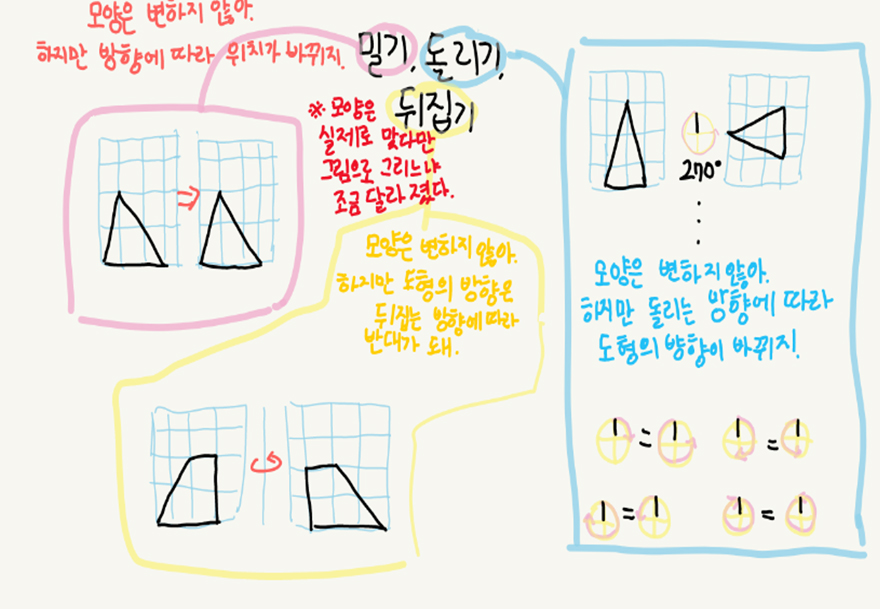 모양은 변하지 않아.
하지만 방향에 따라 위치가 바뀌지.
밀기, 돌리기,
뒤집기
※ 모양은
실제로 맞다만
그림으로 그리느냐
조금 달라 졌다.
모양은 변하지 않아.
하지만 도형의 방향은
뒤집는 방향에 따라
반대가 돼.
270°
모양은 변하지 않아.
하지만 돌리는 방향에 따라
도형의 방향이 바뀌지.
= =
= =